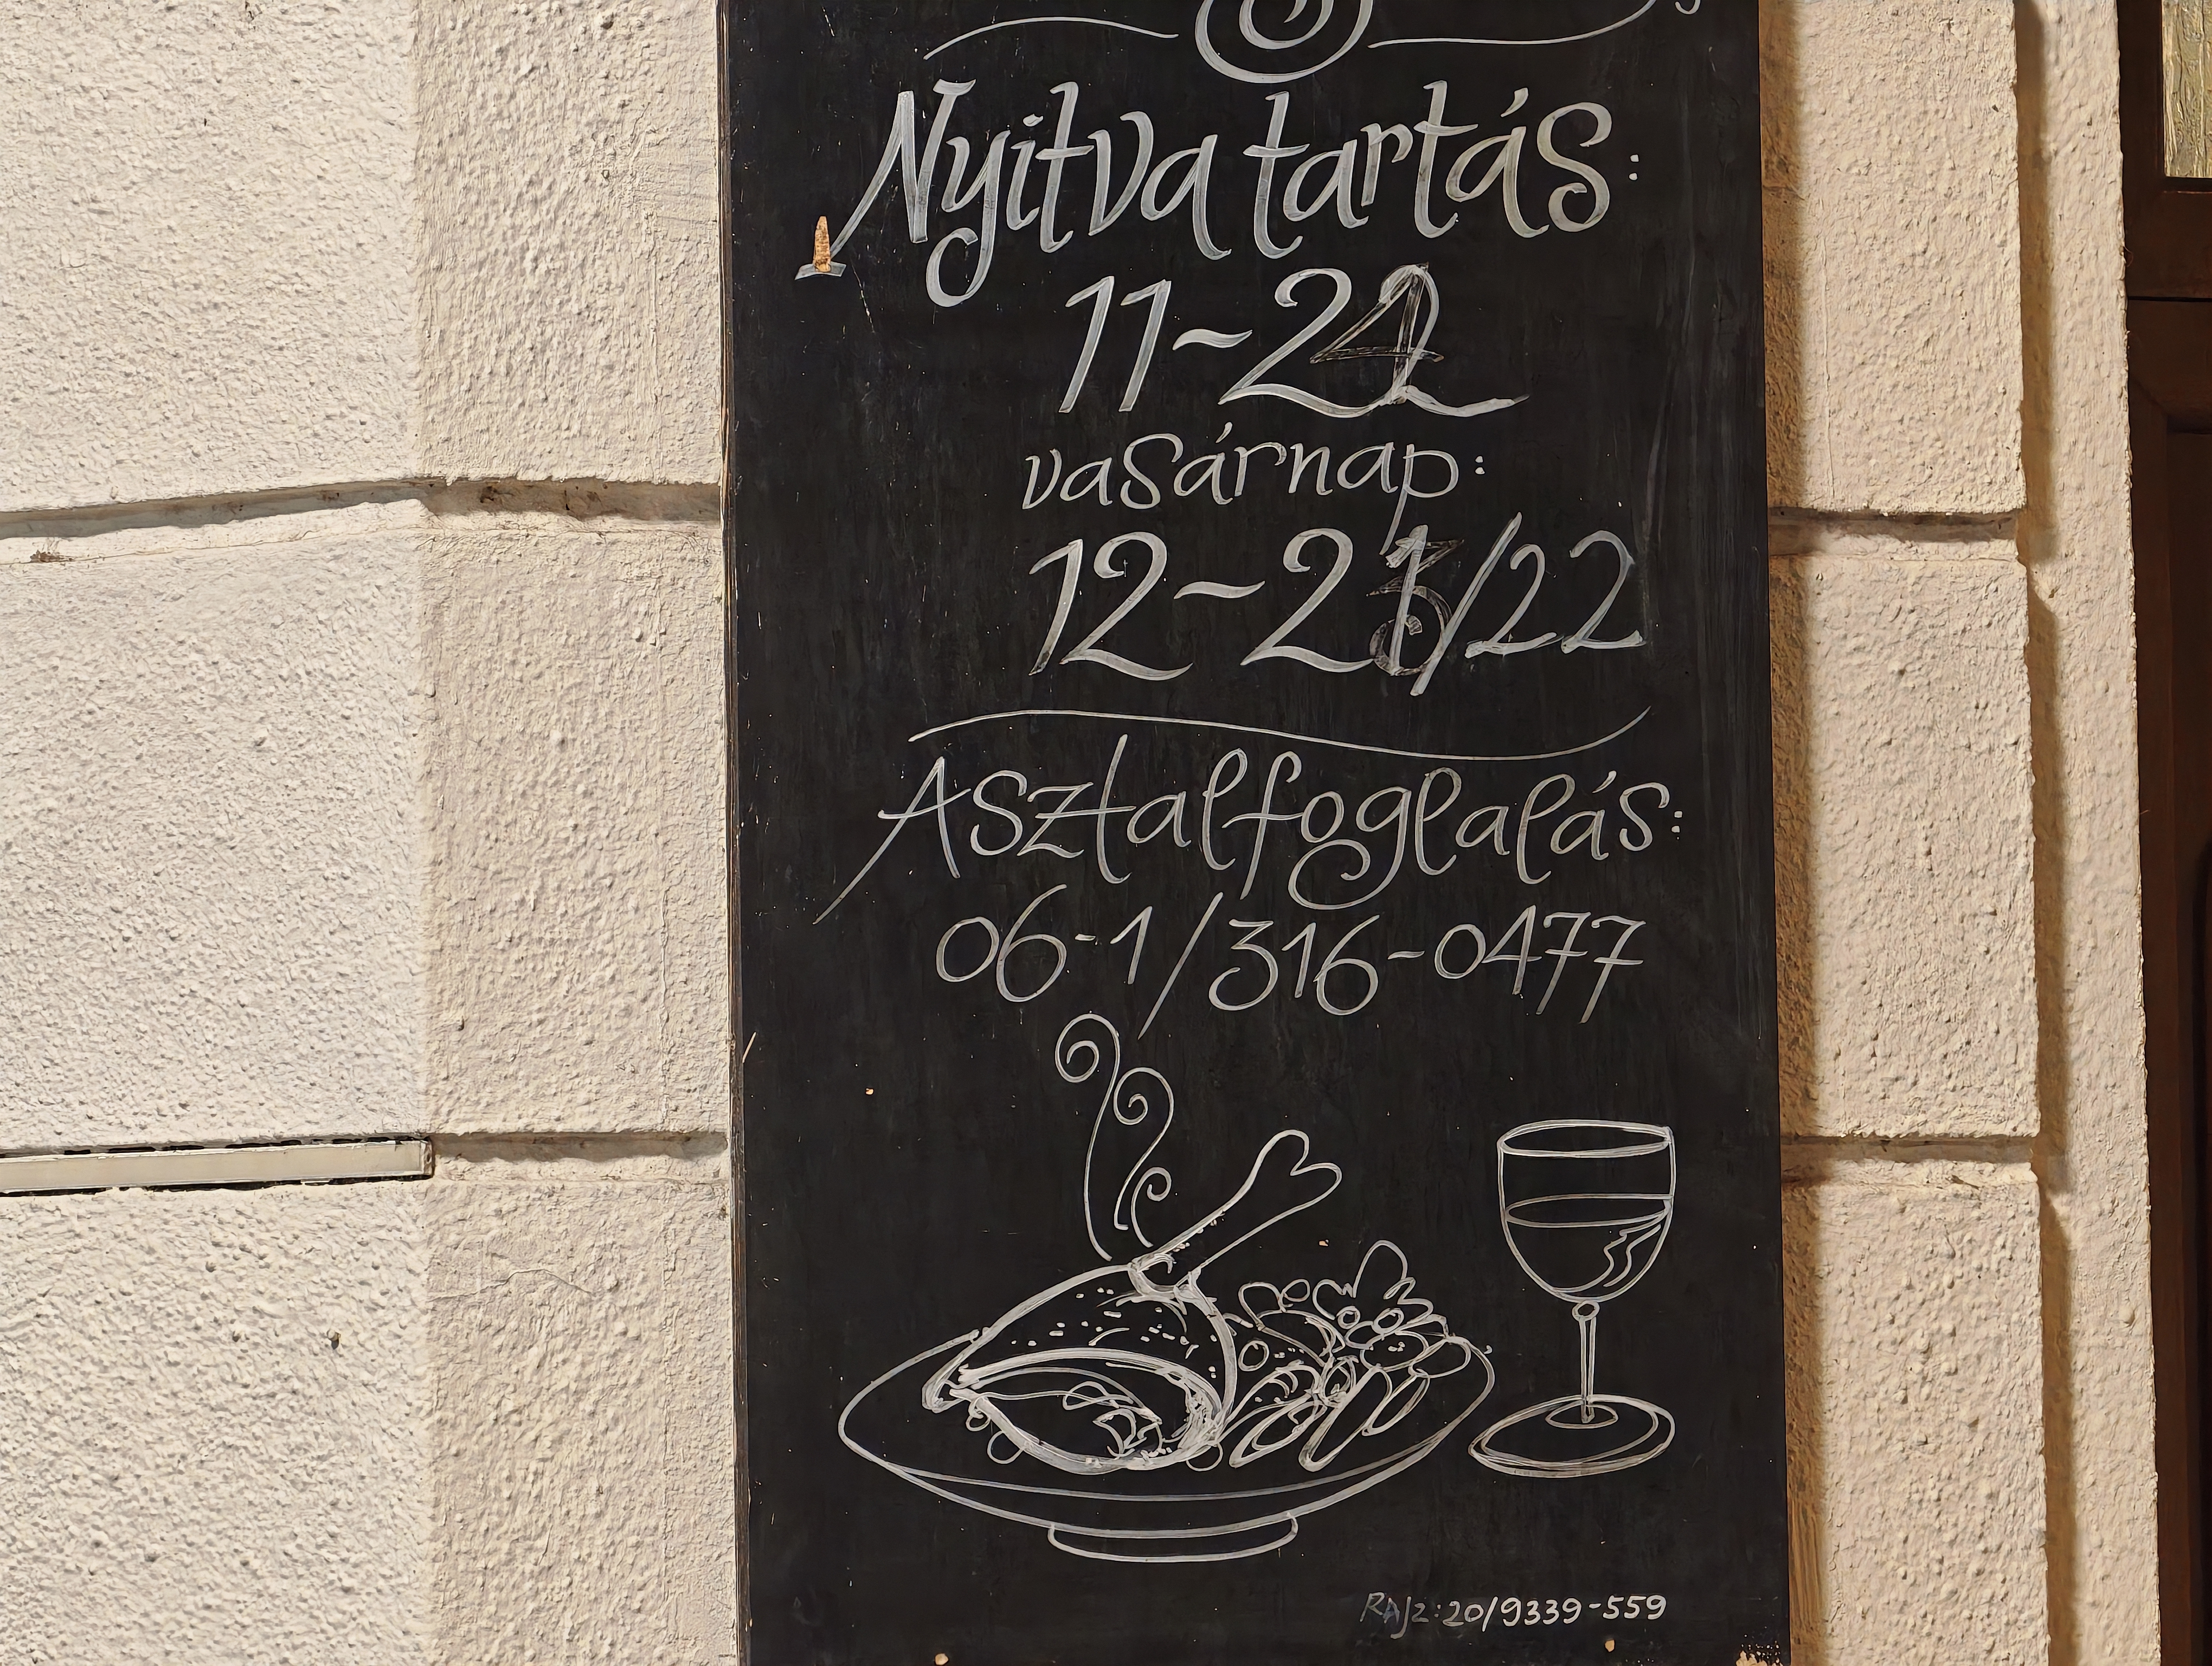 Nyitva tartás:
11-22
vasárnap:
12-21/22
Asztalfoglalás:
06-1/316-0477
RAJZ: 20/9339-559